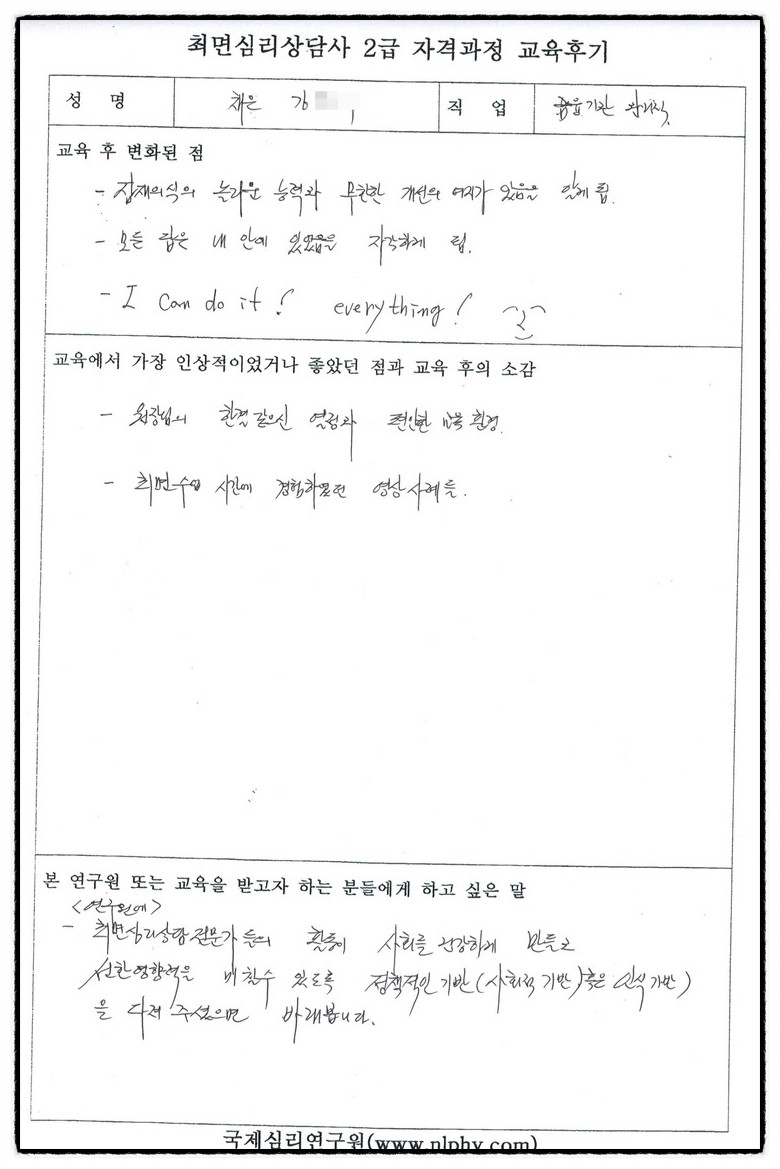 최면심리상담사 2급 자격과정 교육후기
성 명 채은 김 직 업 금융기관 관리직
교육 후 변화된 점
- 잠재의식의 놀라운 능력과 무한한 개선의 여지가 있음을 알게 됨.
- 모든 답은 내 안에 있었음을 자각하게 됨.
- I can do it! everything!
교육에서 가장 인상적이었거나 좋았던 점과 교육 후의 소감
- 원장님의 한결같으신 열정과 편안한 교육 환경.
- 최면수업 시간에 경험하였던 영상 사례들.
본 연구원 또는 교육을 받고자 하는 분들에게 하고 싶은 말
<연구원에>
- 최면심리상담전문가들의 활동이 사회를 건강하게 만들고
선한영향력을 미칠수 있도록 정책적인 기반(사회적 기반)혹은 인식기반)
을 다져 주셨으면 바래봅니다.
국제심리연구원(www.nlphy.com)